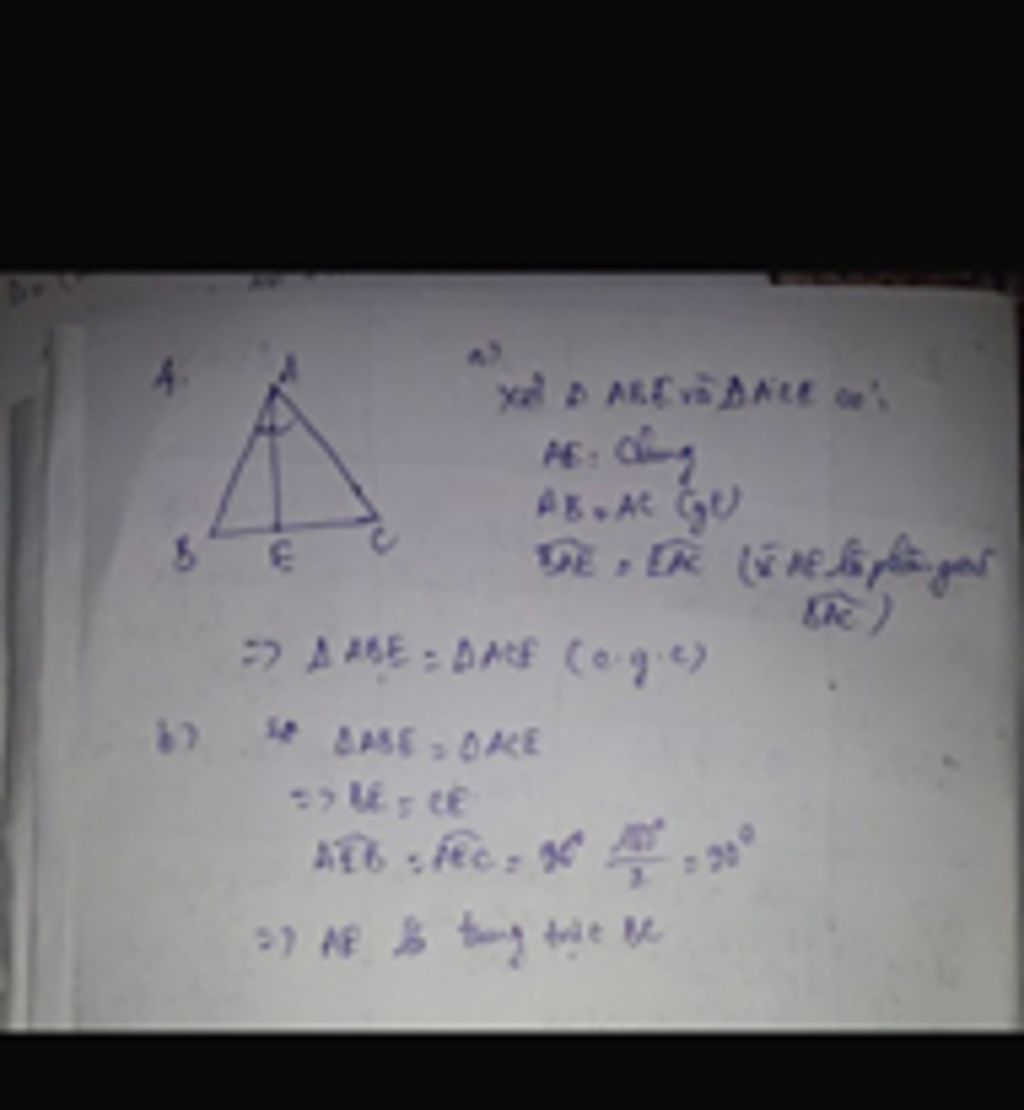 4.
A
B
E
C
a)
Xét Δ ABE và ΔACE có:
AE: Chung
AB = AC (gt)
BAE = EAC (vì AE là phân giác
BAC)
=> Δ ABE = ΔACE (c.g.c)
b) ΔABE = ΔACE
=> BE = CE
AEB = AEC = 180°/2 = 90°
=> AE là trung trực BC